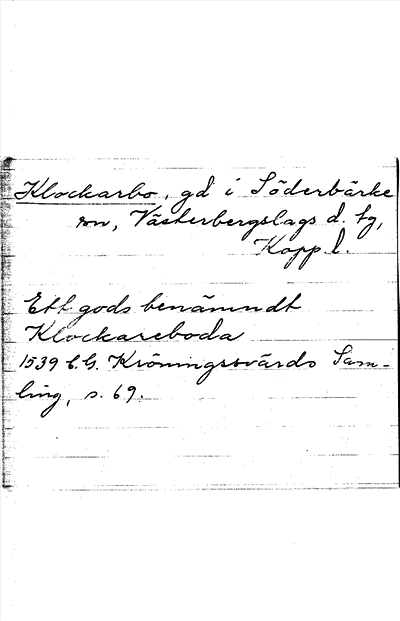 Klockarbo, gd i Söderbärke
sn, Västerbergslags d. tg,
Kopp l.
Ett gods benämndt
Klockareboda
1539 C.G. Kröningssvärds Sam-
ling, s. 69.